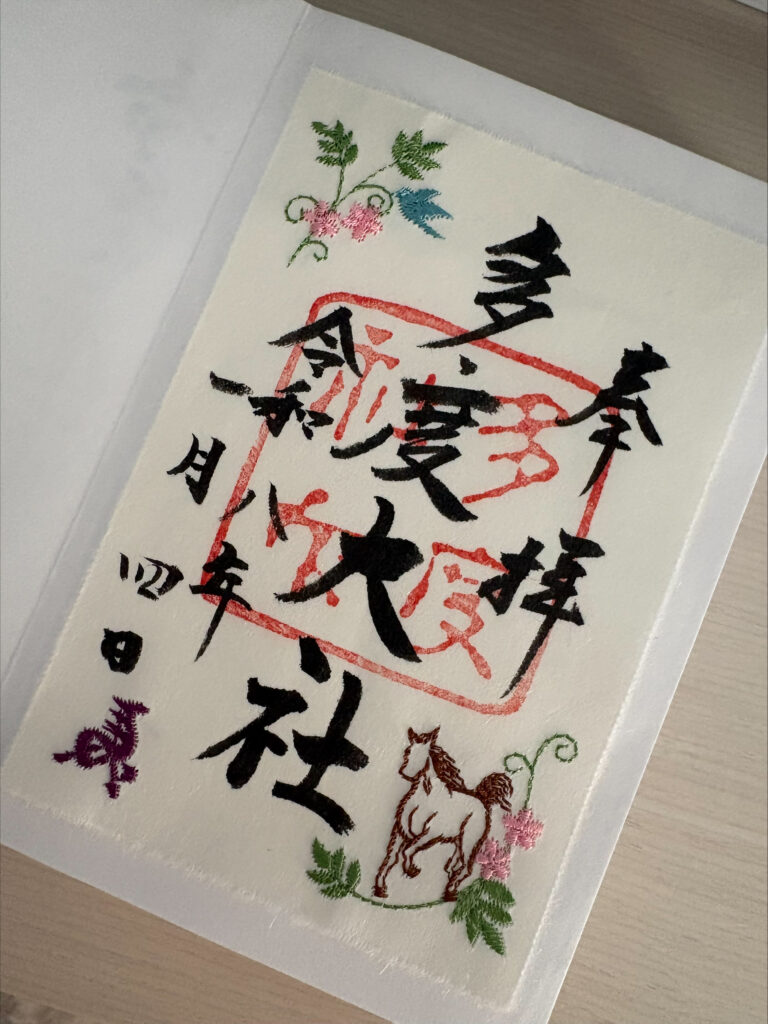 奉拝
多度大社
令和八年
一月四日
多度